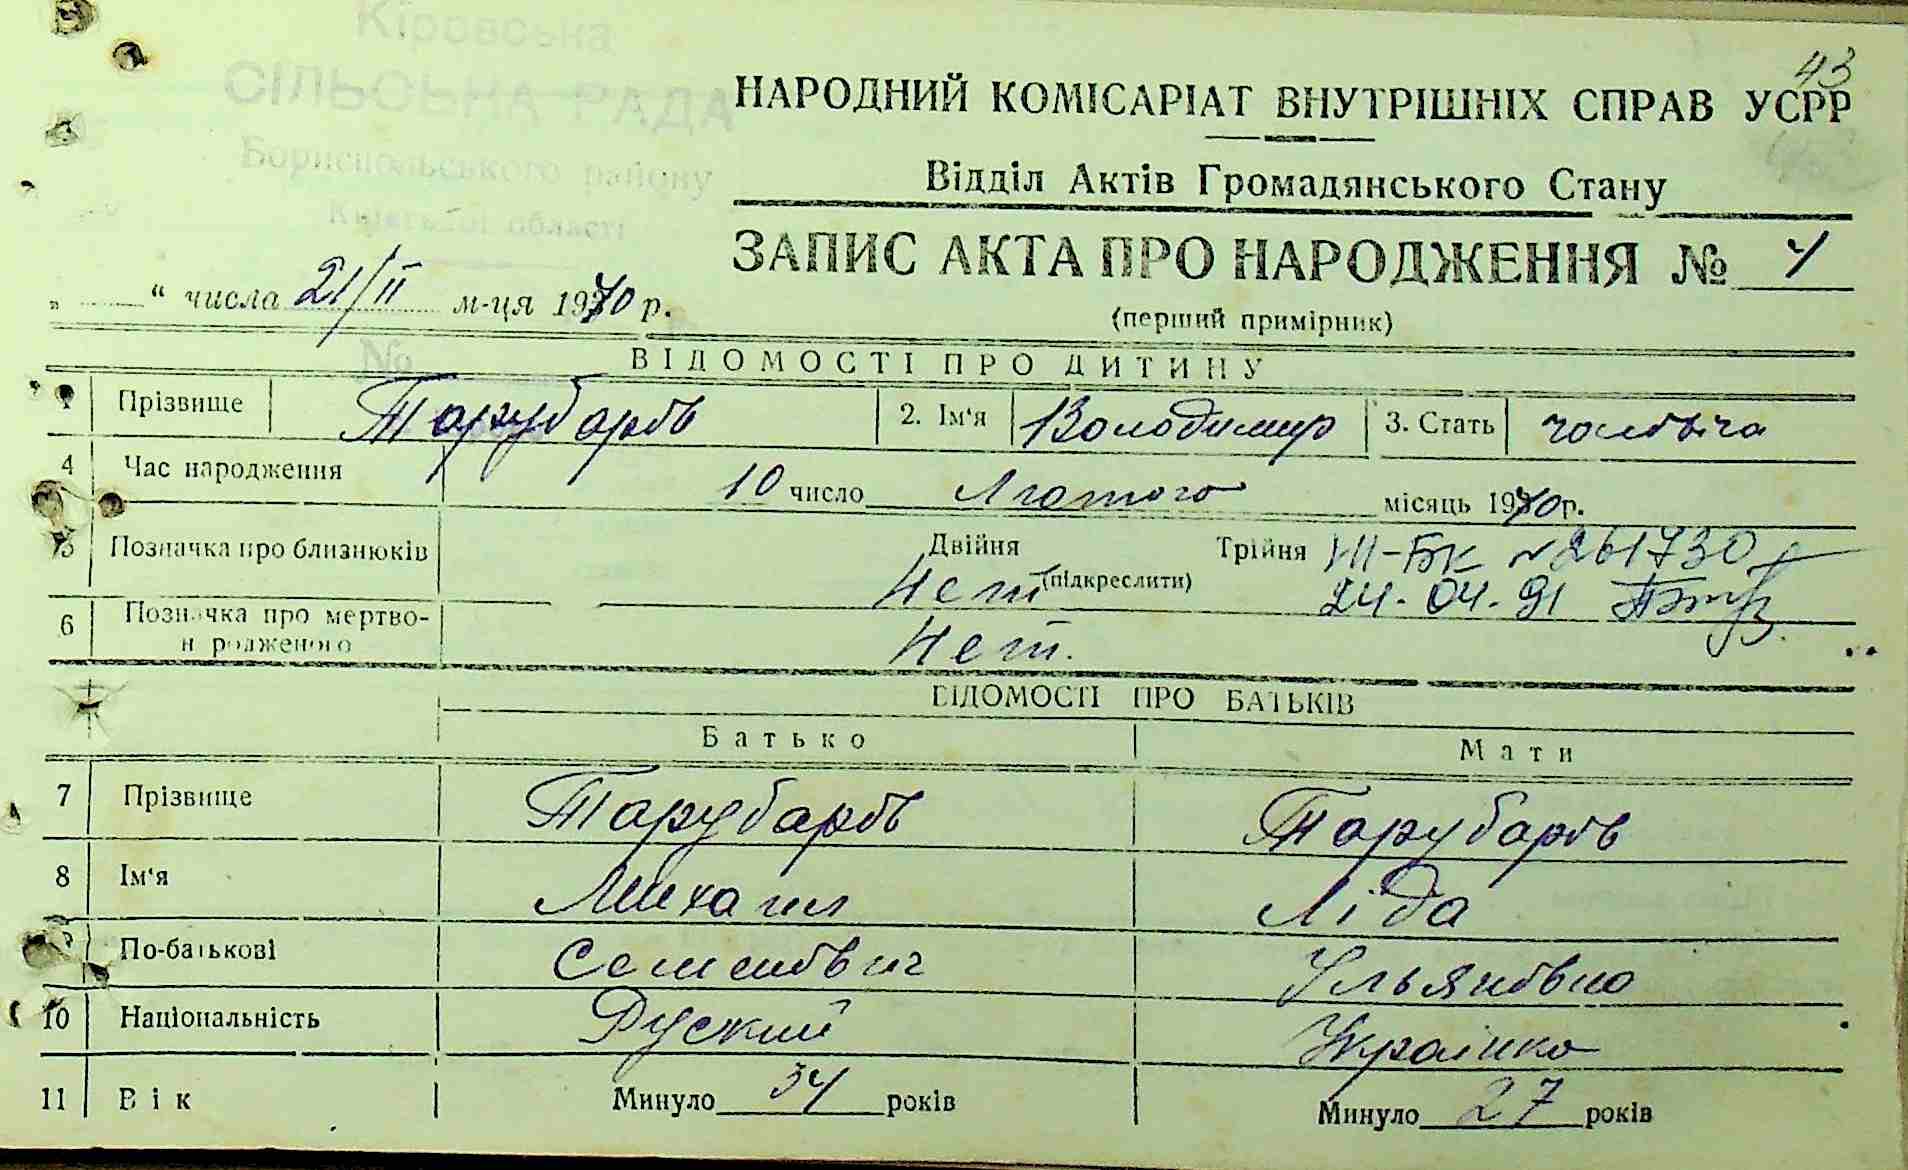 43
Кіровська
СІЛЬСЬКА РАДА
Бориспольського району
Київської області
НАРОДНИЙ КОМІСАРІАТ ВНУТРІШНІХ СПРАВ УСРР
Відділ Актів Громадянського Стану
ЗАПИС АКТА ПРО НАРОДЖЕННЯ №
„ “ числа 21/II м-ця 1940 р.
(перший примірник)
№
ВІДОМОСТІ ПРО ДИТИНУ
1 Прізвище 2. Ім'я Володимир 3. Стать
4 Час народження 10 число Лютого місяць 1940 р.
5 Позначка про близнюків Двійня Трійня III-БК № 261730
Нет (підкреслити) 24-04-91
6 Позначка про мертво-
н родженого Нет.
ВІДОМОСТІ ПРО БАТЬКІВ
Батько Мати
7 Прізвище
8 Ім'я Михаил Ліда
9 По-батькові Семенович Ульяновна
10 Національність Руский Українка
11 Вік Минуло 34 років Минуло 27 років